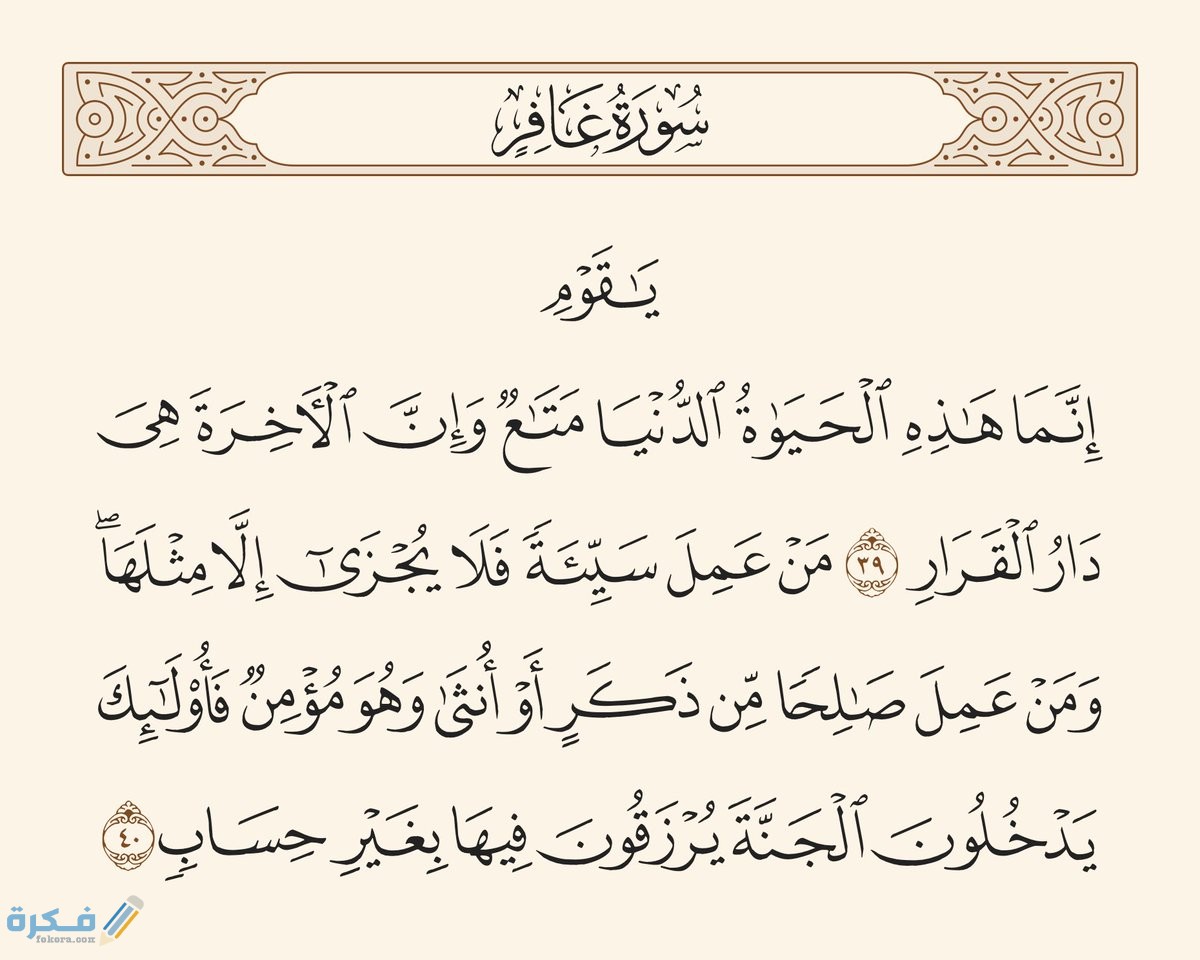 سُورَةُ غَافِرٍ
يَٰقَوۡمِ
إِنَّمَا هَٰذِهِ ٱلۡحَيَوٰةُ ٱلدُّنۡيَا مَتَٰعٞ وَإِنَّ ٱلۡأٓخِرَةَ هِيَ
دَارُ ٱلۡقَرَارِ ٣٩ مَنۡ عَمِلَ سَيِّئَةٗ فَلَا يُجۡزَىٰٓ إِلَّا مِثۡلَهَاۖ
وَمَنۡ عَمِلَ صَٰلِحٗا مِّن ذَكَرٍ أَوۡ أُنثَىٰ وَهُوَ مُؤۡمِنٞ فَأُوْلَٰٓئِكَ
يَدۡخُلُونَ ٱلۡجَنَّةَ يُرۡزَقُونَ فِيهَا بِغَيۡرِ حِسَابٖ ٤٠
فـكـرة
fekera.com